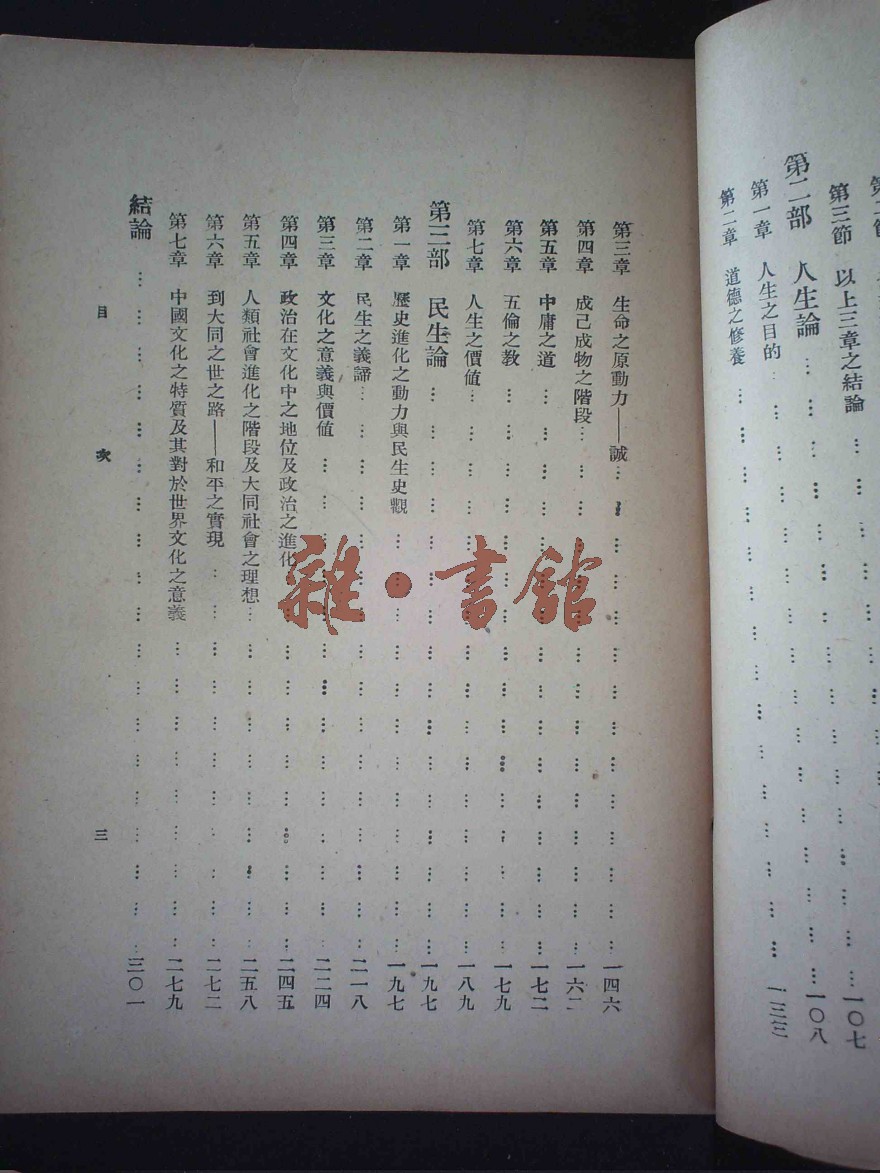 第三節 以上三章之結論……
第二部 人生論……一〇七
第一章 人生之目的……一〇八
第二章 道德之修養……一三三
第三章 生命之原動力——誠……一四六
第四章 成己成物之階段……一六二
第五章 中庸之道……一七二
第六章 五倫之教……一七九
第七章 人生之價值……一八九
第三部 民生論……一九七
第一章 歷史進化之動力與民生史觀……一九七
第二章 民生之義諦……二一八
第三章 文化之意義與價值……二二四
第四章 政治在文化中之地位及政治之進化……二四五
第五章 人類社會進化之階段及大同社會之理想……二五八
第六章 到大同之世之路——和平之實現……二七二
第七章 中國文化之特質及其對於世界文化之意義……二七九
結論……三〇一
目次 三
雜·書館